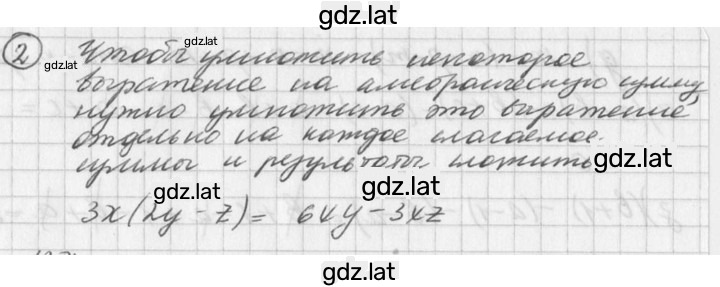 gdz.lat
② Чтобы умножить некоторое
gdz.lat
gdz.lat
выражение на алгебраическую сумму,
нужно умножить это выражение
отдельно на каждое слагаемое
суммы и результаты сложить
gdz.lat
gdz.lat
3x(2y - z) = 6xy - 3xz
gdz.lat